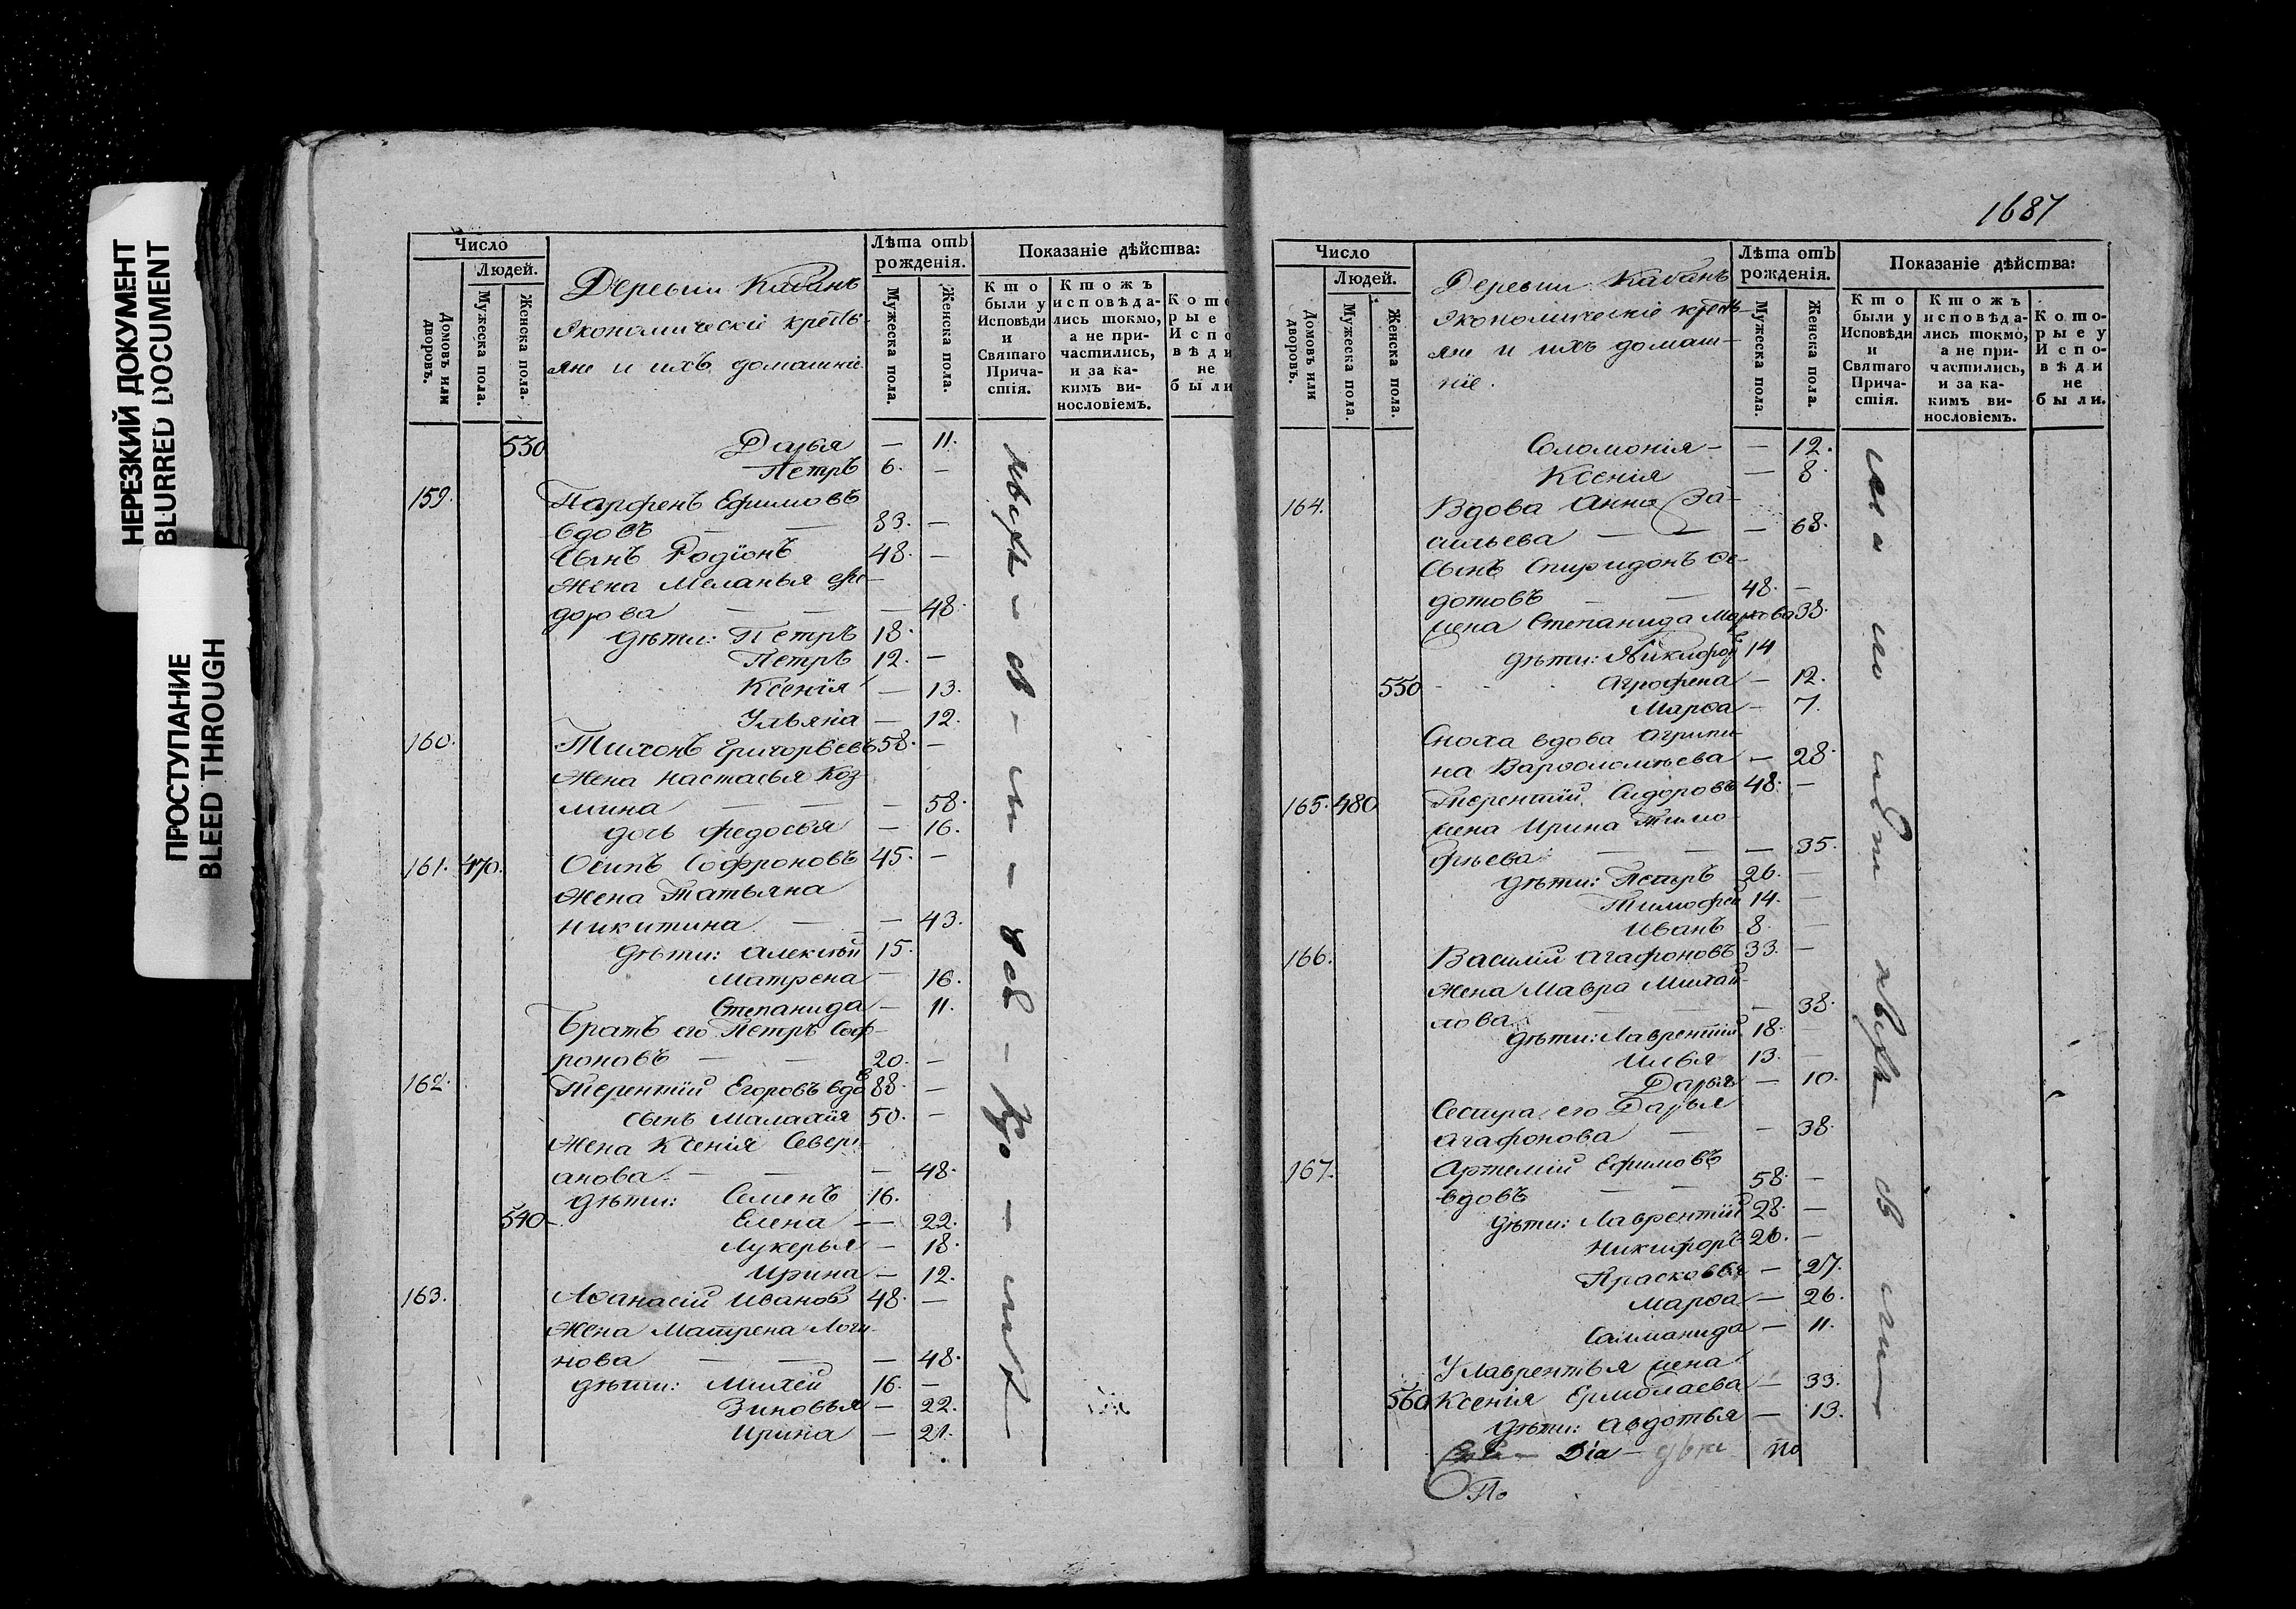 НЕРЕЗКИЙ ДОКУМЕНТ
BLURRED DOCUMENT
ПРОСТУПАНИЕ
BLEED THROUGH
Число
Людей.
Домовъ или дворовъ.
Мужеска пола.
Женска пола.
Деревни Кабанъ
Экономическіе кресть-
яне и ихъ домашніе
Лѣта отъ рожденія.
Мужеска пола.
Женска пола.
Показаніе дѣйства:
Кто были у Исповѣди и Святаго Прича-стія.
Ктожъ исповѣда-лись токмо, а не при-частились, и за ка-кимъ ви-нословіемъ.
530 Дарья — 11.
Петръ 6. —
159. Парфенъ Ефимовъ
вдовъ — — 83. —
Сынъ Родіонъ 48. —
Жена Меланья Фе-
дорова — — — 48.
дѣти: Петръ 18.
Петръ 12. —
Ксенія — 13.
Ульяна — 12.
160. Тихонъ Григорьевъ 58. —
Жена Настасья Коз
мина — — — 58.
дочь Федосья — 16.
161. 470. Осипъ Софроновъ 45. —
Жена Татьяна
Никитина — — 43.
дѣти: Алексѣй 15.
Матрена — 16.
Степанида — 11.
Братъ его Петръ Соф-
роновъ — — 20. —
162. Терентій Егоровъ вдовъ 88. —
сынъ Малахія 50. —
Жена Ксенія Севери-
анова — — — 48.
дѣти: Семенъ 16.
540 Елена — 22.
Лукерья — 18.
Ирина — 12.
163. Аѳанасій Ивановъ 48. —
Жена Матрена Логи-
нова — — — 48.
дѣти: Михей 16. —
Зиновья — 22.
Ирина — 21.
1687
Число
Людей.
Домовъ или дворовъ.
Мужеска пола.
Женска пола.
Деревни Кабанъ
Экономическіе кресть-
яне и ихъ домаш-
ніе.
Лѣта отъ рожденія.
Мужеска пола.
Женска пола.
Показаніе дѣйства:
Кто были у Исповѣди и Святаго Прича-стія.
Ктожъ исповѣда-лись токмо, а не при-частились, и за ка-кимъ ви-нословіемъ.
Кото-рые у Испо-вѣди не были.
Соломонія — — 12.
Ксенія — 8.
164. Вдова Анна Ва-
сильева — — — 68.
Сынъ Спиридонъ Ѳе-
дотовъ — — 48. —
жена Степанида Маркова 38.
дѣти: Никифоръ 14
550 Агрофена — 12.
Марѳа — 7.
Сноха вдова Агрипи-
на Варѳоломѣева — 28.
165. 480 Терентій Сидоровъ 48. —
жена Ирина Тимо-
фѣева — — — 35.
дѣти: Петръ 26. —
Тимофей 14. —
Иванъ 8. —
166. Василій Агафоновъ 33. —
Жена Мавра Михай-
лова — — — 38.
дѣти: Лаврентій 18.
Илья 13. —
Дарья — 10.
Сестра его Дарья
Агафонова — — 38.
167. Артемій Ефимовъ
вдовъ — — 58. —
дѣти: Лаврентій 28. —
Никифоръ 26. —
Прасковья — 27.
Марѳа — 26.
— 11.
У Лаврентья жена
560 Ксенія Ермолаева — 33.
дѣти: Авдотья — 13.
По